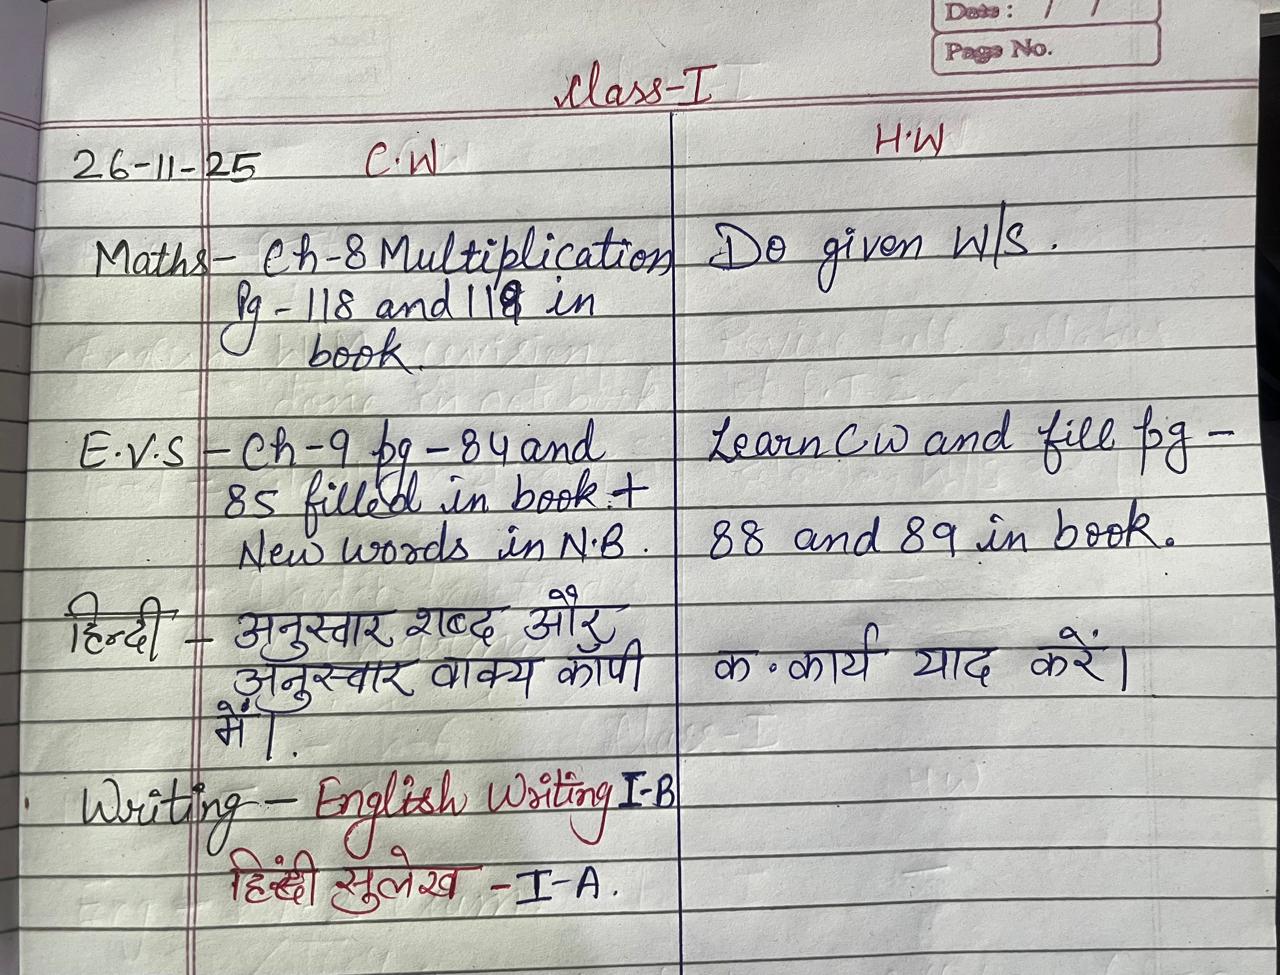 Date: / /
Page No.
Class-I
26-11-25 C.W H.W
Maths- Ch-8 Multiplication Do given W/S.
Pg-118 and 119 in
book.
E.V.S - Ch-9 pg-84 and Learn CW and fill pg-
85 filled in book +
New words in N.B. 88 and 89 in book.
हिन्दी - अनुस्वार शब्द और
अनुस्वार वाक्य कॉपी क.कार्य याद करें।
में।.
Writing - English Writing I-B
हिंदी सुलेख - I-A.